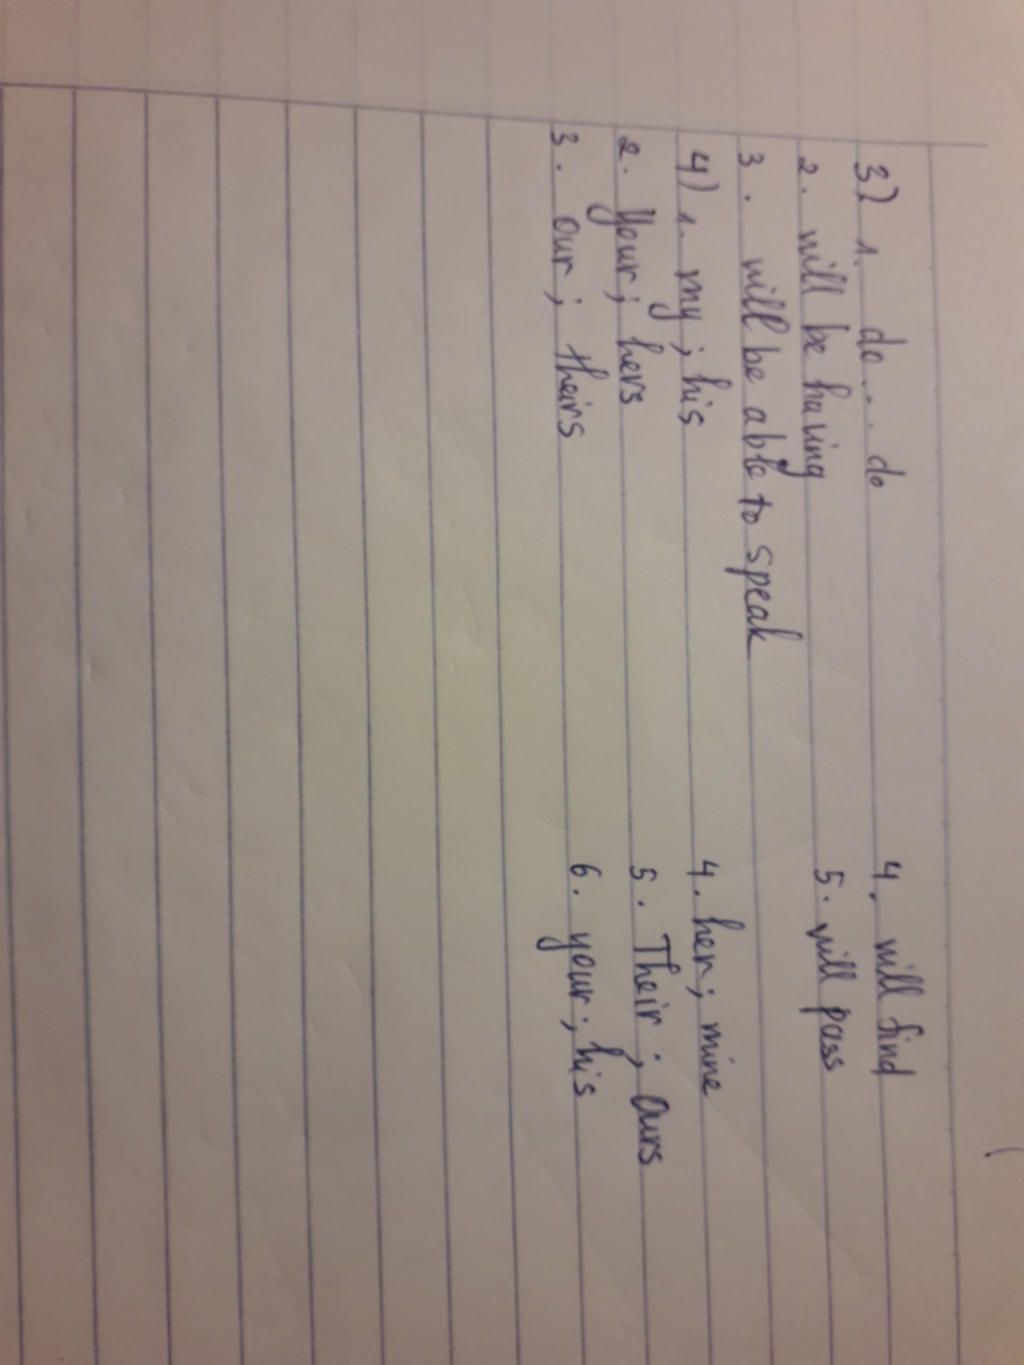 3) 1. do...do 4. will find
2. will be having 5. will pass
3. will be able to speak
4) 1. my; his 4. her; mine
2. your; hers 5. Their; ours
3. our; theirs 6. your; his